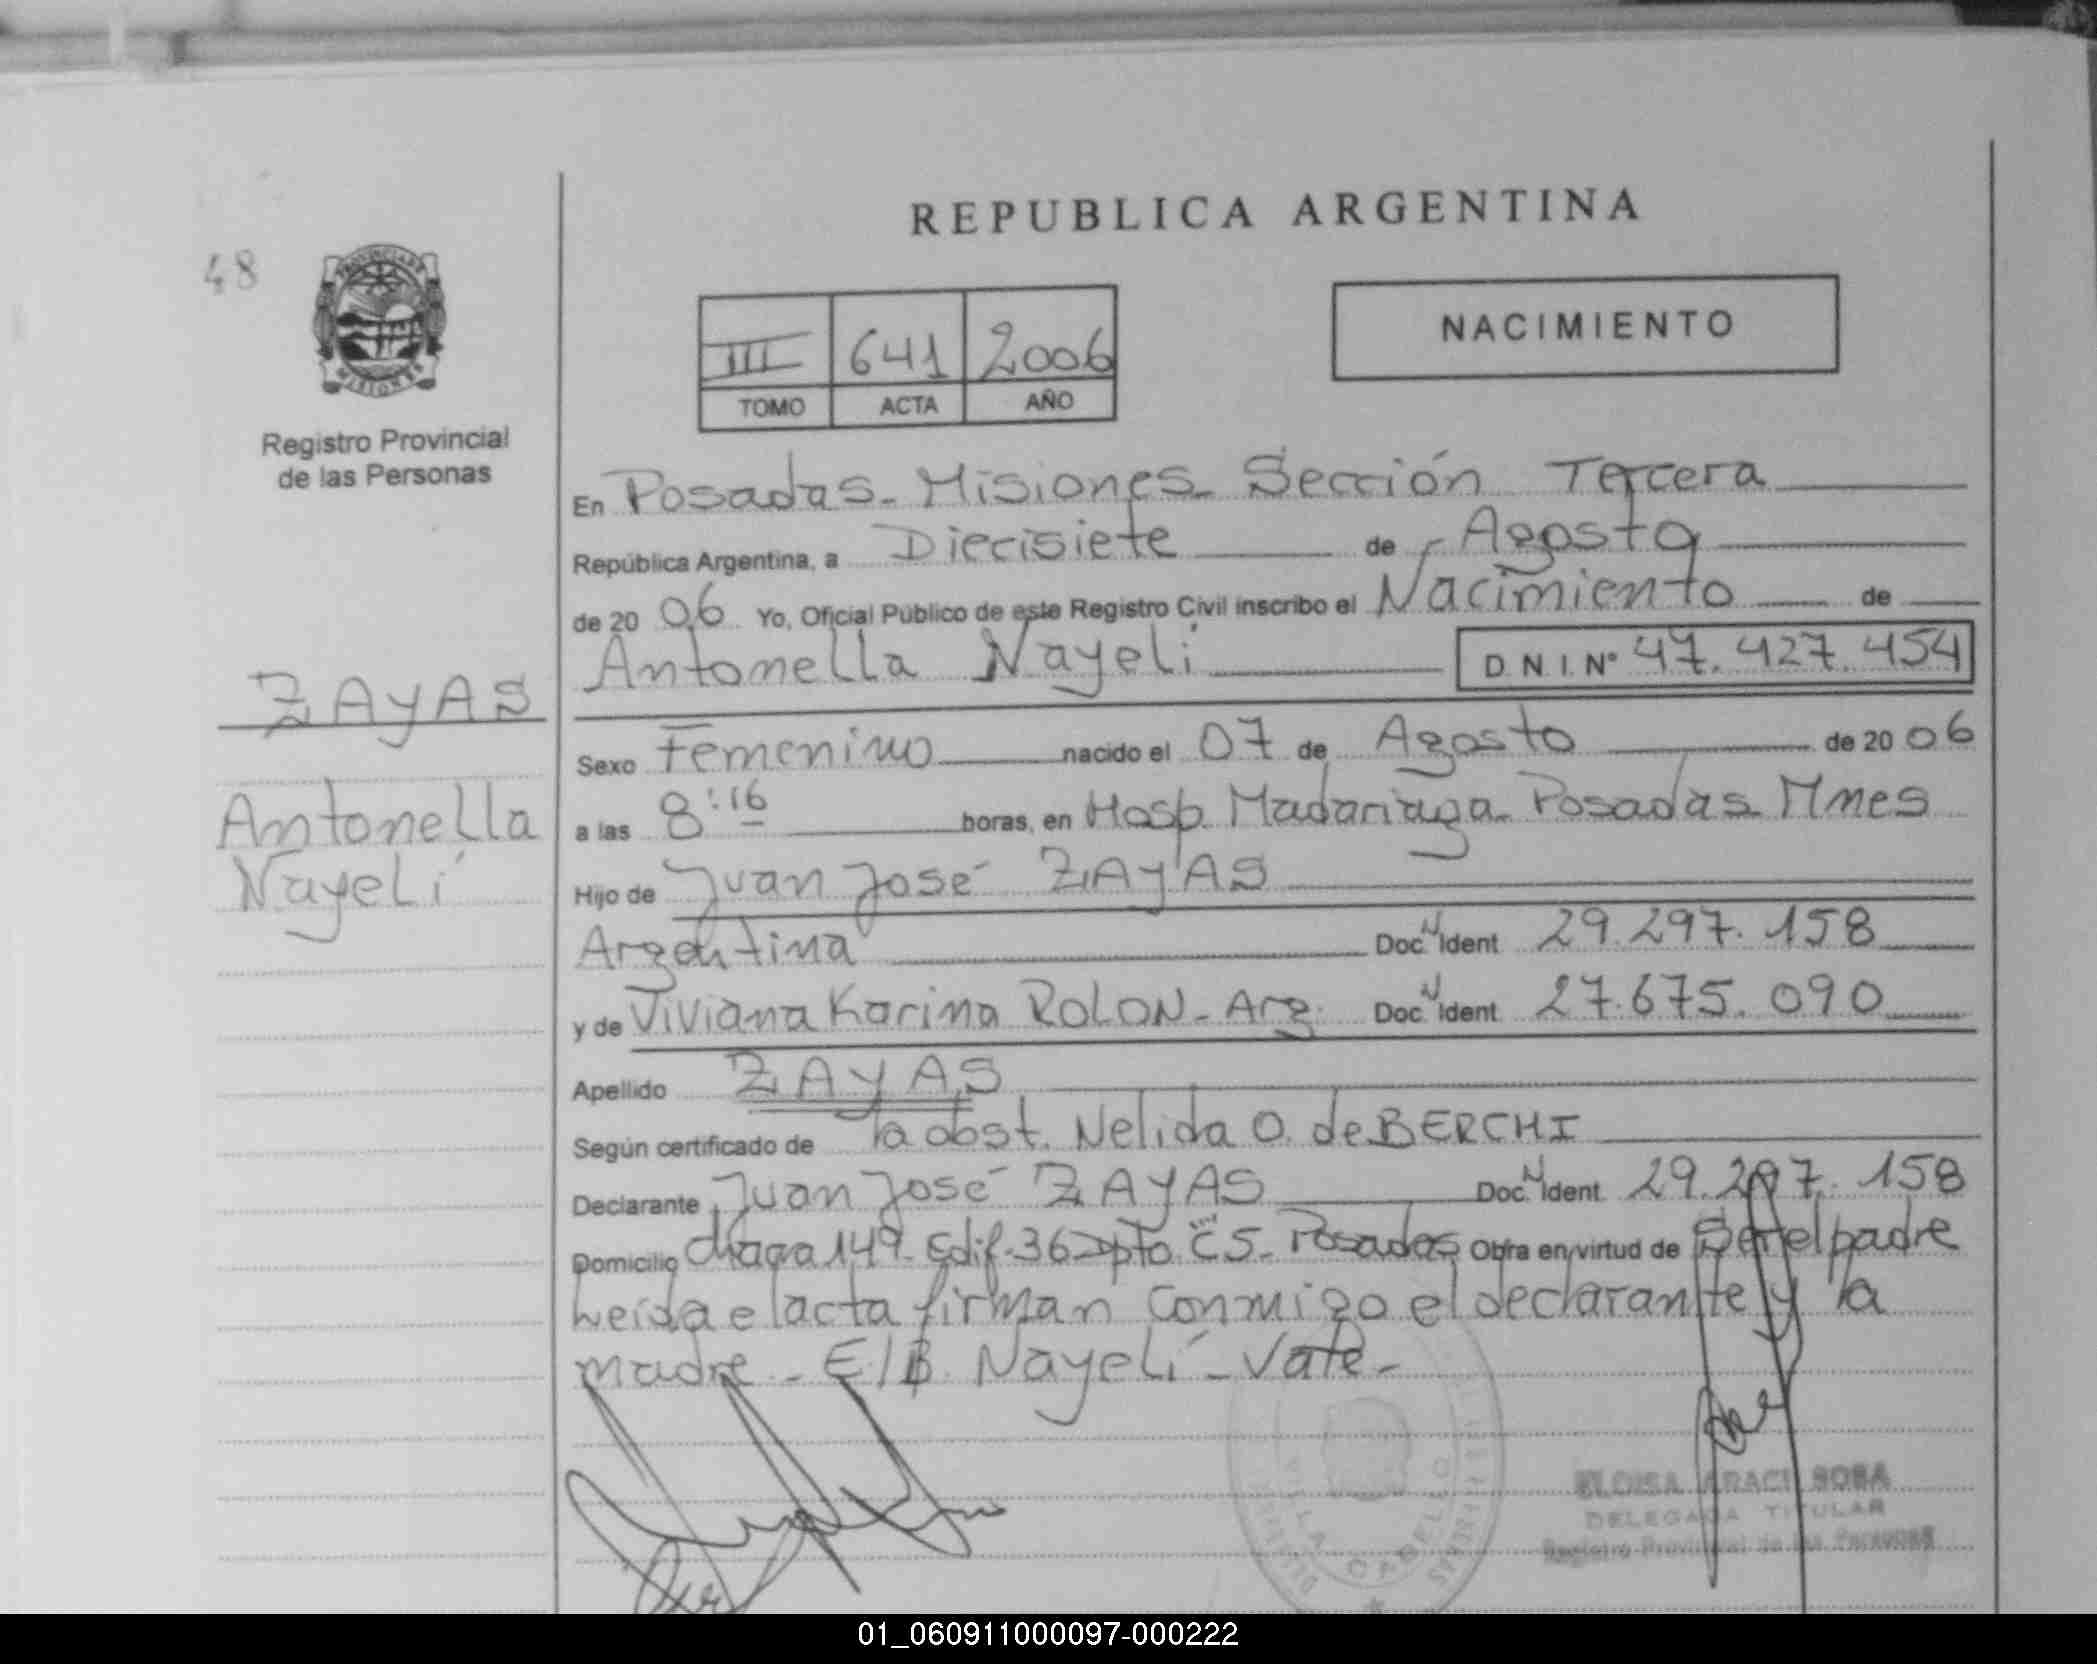 REPUBLICA ARGENTINA
48
PROVINCIA DE
MISIONES
Registro Provincial
de las Personas
III 641 2006
TOMO ACTA AÑO
NACIMIENTO
En Posadas - Misiones - Sección Tercera
República Argentina, a Diecisiete de Agosto
de 20 06 Yo, Oficial Público de este Registro Civil inscribo el Nacimiento de
Antonella Nayelí D.N.I. Nº 47.427.454
ZAYAS
Antonella
Nayelí
Sexo Femenino nacido el 07 de Agosto de 20 06
a las 8:16 horas, en Hosp. Madariaga - Posadas - Mnes
Hijo de Juan José ZAYAS
Argentina Doc. N Ident 29.297.158
y de Viviana Karina ROLON - Arg. Doc. N Ident. 27.675.090
Apellido ZAYAS
Según certificado de la obst. Nelida O. de BERCHI
Declarante Juan José ZAYAS Doc. N Ident. 29.297.158
Domicilio 149 - Edif. 36 Dpto. C5 - Posadas Obra en virtud de Ser el padre
Leída el acta firman conmigo el declarante y la
madre - E/B. Nayelí - Vale -
VILLA CABELLO
ELOISA ARACI SOSA
DELEGADA TITULAR
Registro Provincial de las Personas
01_060911000097-000222